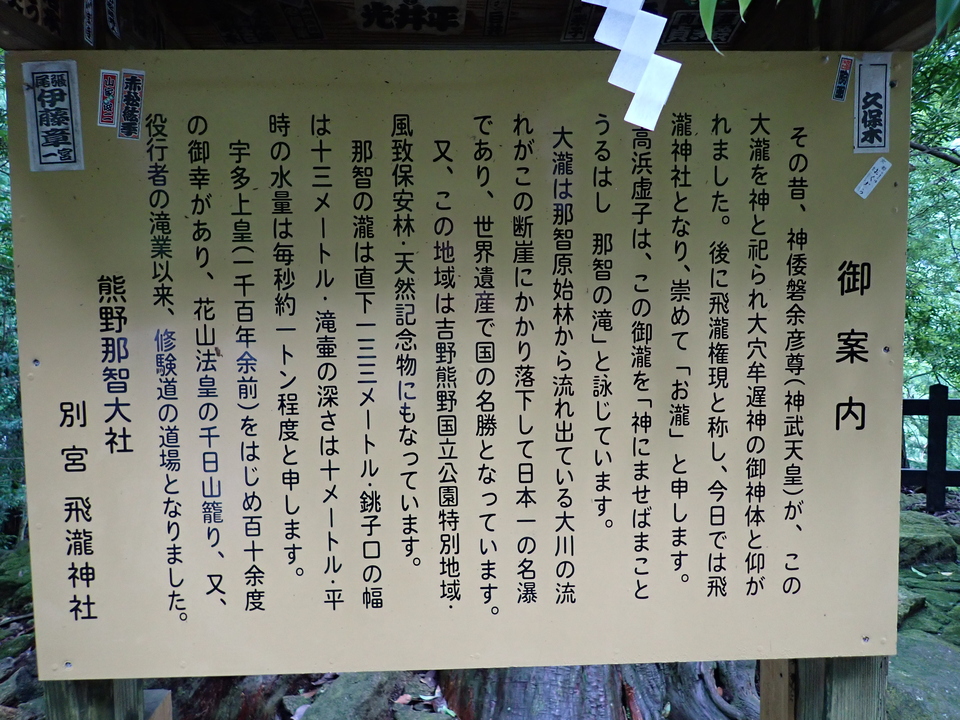 御案内
その昔、神倭磐余彦尊(神武天皇)が、この
大瀧を神と祀られ大穴牟遅神の御神体と仰が
れました。後に飛瀧権現と称し、今日では飛
瀧神社となり、崇めて「お瀧」と申します。
高浜虚子は、この御瀧を「神にませばまこと
うるはし 那智の滝」と詠じています。
大瀧は那智原始林から流れ出ている大川の流
れがこの断崖にかかり落下して日本一の名瀑
であり、世界遺産で国の名勝となっています。
又、この地域は吉野熊野国立公園特別地域・
風致保安林・天然記念物にもなっています。
那智の瀧は直下一三三メートル・銚子口の幅
は十三メートル・滝壷の深さは十メートル・平
時の水量は毎秒約一トン程度と申します。
宇多上皇(一千百年余前)をはじめ百十余度
の御幸があり、花山法皇の千日山籠り、又、
役行者の滝業以来、修験道の道場となりました。
熊野那智大社
別宮 飛瀧神社
久保木
尾張
伊藤章
一宮